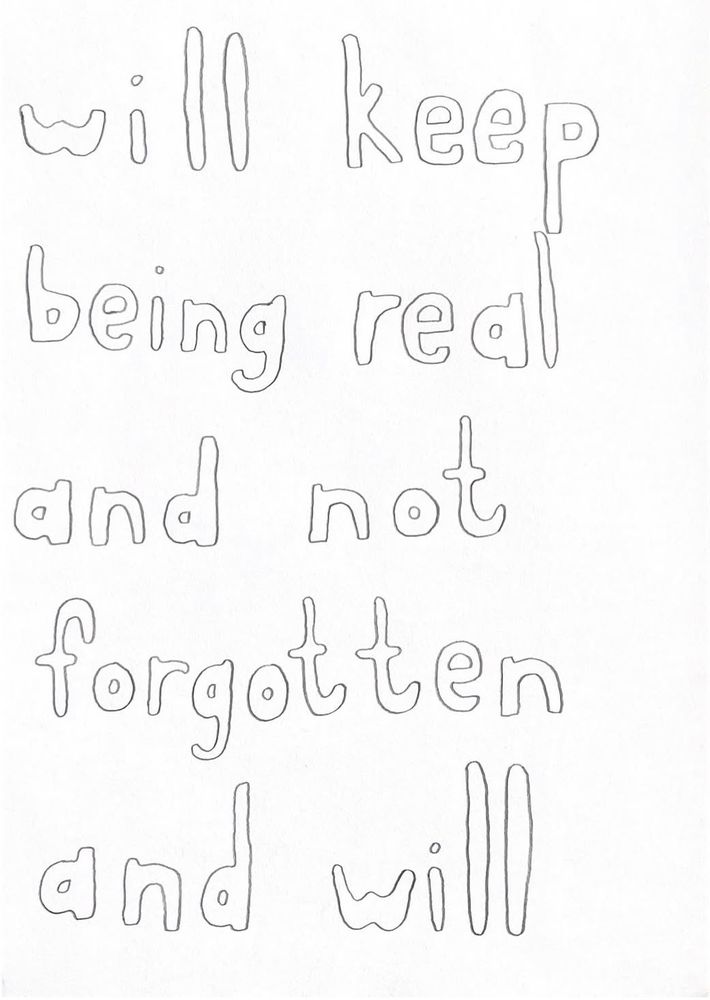 will keep
being real
and not
forgotten
and will